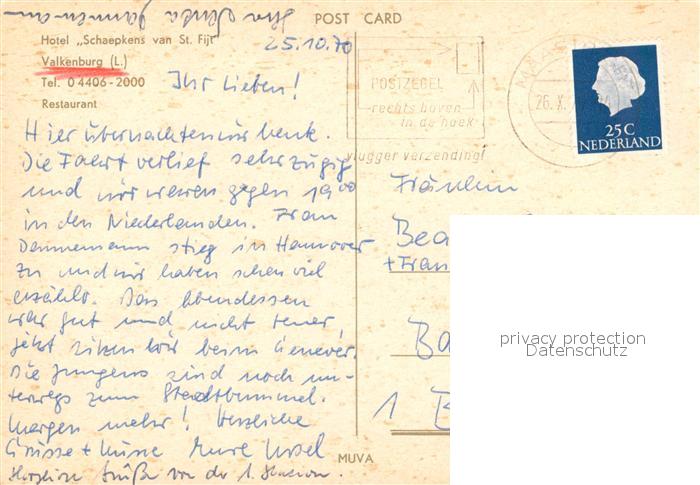 POST CARD
Hotel „Schaepkens van St. Fijt"
Valkenburg (L.)
Tel. 0 4406-2000
Restaurant
25.10.70
Ihr Lieben!
Hier übernachten wir heute.
Die Fahrt verlief sehr zügig
und wir waren gegen 19⁰⁰
in den Niederlanden. Frau
Dannemann stieg in Hannover
zu und wir haben schon viel
erzählt. Das Abendessen
war gut und nicht teuer,
jetzt sitzen wir beim Genever.
Die Jungens sind noch un-
terwegs zum Stadtbummel.
Morgen mehr! Herzliche
Grüsse + Küsse Eure Ursel
Herzliche Grüße von der 1. Station.
POSTZEGEL
rechts boven
in de hoek
vlugger verzending!
26.X.
25C
NEDERLAND
Fräulein
Bea
+ Frau
Ba
1 B
privacy protection
Datenschutz
MUVA